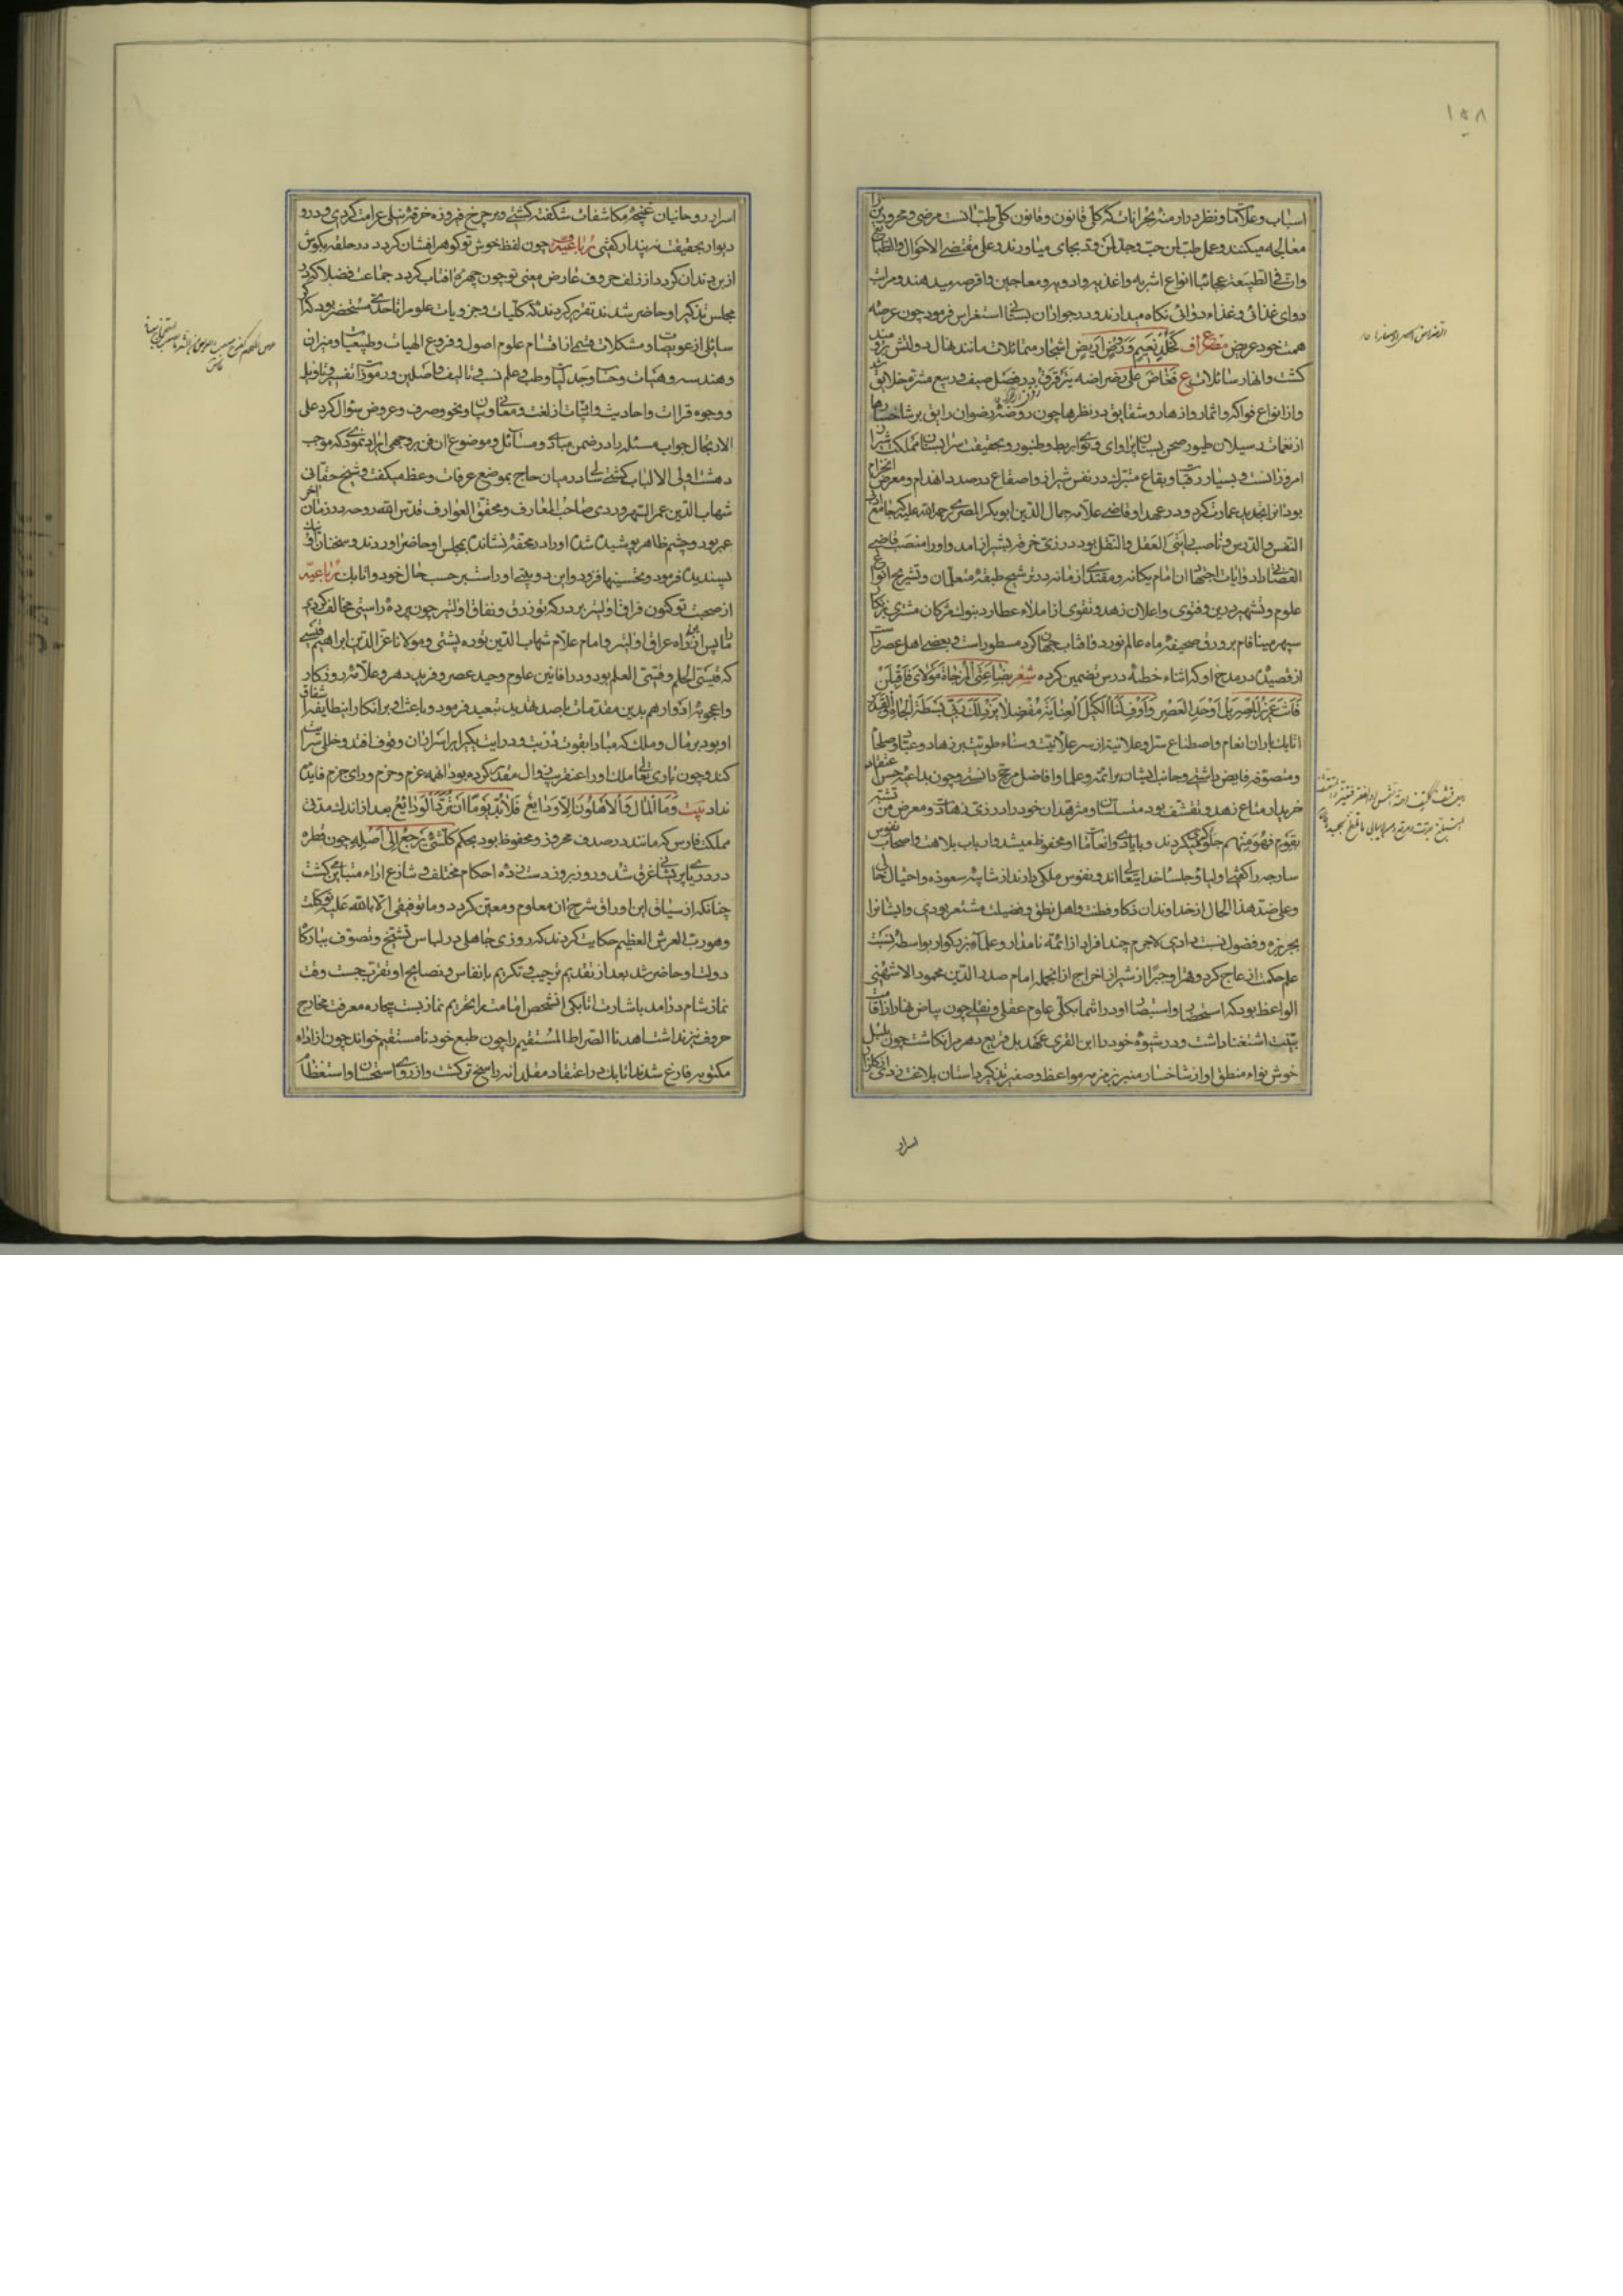 ۱۵۸
اسباب و علامات و نظر در ادمنه بحرانات که کلی قانون و قانون کلی طب است مرضی و محرورین را
معالجه میکنند و علی مقتضی الاحوال و الطبایع
انواع اشربه و اغذیه و ادویه و معاجین و اقرصه میدهند و مراتب
دوای غذائی و غذاء دوائی نگاه میدارند و در جوار آن بستانی استغراس فرمود چون عرصه
همت خود عریض مصراع اشجار متماثلات مانند نهال دولتش برومند
گشت و انهار سائلات ع در فصل صیف و ربیع مشرق خلایق
و از انواع فواکه و اثمار و ازهار و شقایق در نظرها چون روضه رضوان رایق بر شاخسارها
از نغمات و سیلان طیور صحن بستان پر اوای و نوای بربط و طنبور و بحقیقت سرابستان مملکت شیراز
امروز آنست و بسیار رقبات و بقاع متبرک در نفس شیراز و اصقاع در صدد انهدام و معرض انخرام
بود انرا تجدید عمارت کرد و در عهد او قاضی علامه جمال الدین ابوبکر المصری رحمة الله علیه که جامع ادب
النفس و الدرس و ناصب رایتی العقل و النقل بود در زی خرقه بشیراز آمد و او را منصب قاضی
القضاتی داد و ایات اجتهاد ان امام یگانه و مقتدای زمانه در ترشیح طبقه متعلمان و تشریح انواع
علوم و تشهیر درس و فتوی و اعلان زهد و تقوی از املاء عطارد بنوک مژگان مشتری بر نگار
سپهر مینافام بر ورق صحیفه ماه عالم نورد و افتاب جهانگرد مسطور است و بعضی اهل عصر راست
از قصیده در مدح او که اثناء خطبه درس تضمین کرده شعر بضاعتی المزجاة مولای فاقبلن
فانت عزیز المصر بل اوحد العصر و اوف لنا الکیل
اتابک باران انعام و اصطناع سرا و علانیة از سر علانیت و سناء طویت بر زهاد و عباد و صلحا
و متصوفه فایض داشتی و جانب ایشان بر ائمه و علما و افاضل مرجح دانستی و چون بداعیه حسن اعتقاد
خریدار متاع زهد و تقشف بود متسلسان و متزهدان خود را در زی زهادت و معرض من تشبه
بقوم فهو منهم جلوه گری میکردند و بایادی و انعامات او محظوظ میشد و ارباب بلاهت و اصحاب نفوس
ساوجه را گفتی اولیا و جلساء خدای تعالی اند و نفوس ملکی دارند از شایبه شعوذه و احتیال خالی
و علی ضد هذا الحال از خداوندان ذکا و فطنت و اهل نطق و فضیلت مستشعر بودی و ایشانرا
بجربزه و فضول نسبت دادی لاجرم چند افراد از ائمه نامدار و علماء بزرگوار بواسطه نسبت
علم حکمت از عاج کرد و قهرا و جبرا از شیراز اخراج از انجمله امام صدر الدین محمود الاشنهی
الواعظ بود که استحضار و استبصار او در اشمار بکلی علوم عقلی و نقلی چون بیاض نهار از اقامت
بینت استغنا داشت و در شیوه خود را ابن القری عهد بل قریع دهر می انگاشت چون بلبل
خوش نواء منطق او از شاخسار منبر بزمزمه مواعظ و صفیر تذکیر داستان بلاغت زدی از گلزار
اسرار
اسرار روحانیان غنچه مکاشفات شکفته گشتی و پیر چرخ فیروزه خرقه نیلی غرامت کردی و در و
دیوار بحقیقت نه پندار گفتی رباعیه چون لفظ خوش تو گوهر افشان گردد در حلقه بگوش
از بن دندان گردد از زلف حروف عارض معنی تو چون چهره افتاب گردد جماعت فضلا که در
مجلس تذکیر او حاضر شدند تقریر کردند که کلیات و جزویات علوم را تا حدی مستحضر بود که اگر
سائلی از عویصات و مشکلات قسمی از اقسام علوم اصول و فروع الهیات و طبیعیات و میزان
و هندسه و هیات و حساب و جدلیات و طب و علم نسب و تالیف و اصلین و رموز تفسیر و تاویل
و وجوه قراات و احادیث و اثبات از لغت و معانی و بیان و نحو و صرف و عروض سوال کرد علی
الارتجال جواب مسئله را در ضمن مبادی و مسائل و موضوع ان فن بر وجهی ایراد نمودی که موجب
دهشت اولی الالباب گشتی سالی در میان حاج بموضع عرفات وعظ میگفت و شیخ حقانی
شهاب الدین عمر السهروردی صاحب المعارف و محقق العوارف قدس الله روحه در زمان آخر
عمر بود و چشم ظاهر پوشیده شده او را در محفه نشانده بمجلس او حاضر اوردند و سخنان او
پسندیده فرمود و تحسینها افزود و این دو بیتی او راست بر حسب حال خود و اتابک رباعیه
از صحبت تو کنون فراق اولیتر بر درگه تو زرق و نفاق اولیتر چون پرده راستی مخالف کردی
ما را پس ازین راه عراق اولیتر و امام علام شهاب الدین توره پشتی و مولانا عز الدین ابراهیم قیسی
که قیسی الحلم و قیسی العلم بود و در افانین علوم وحید عصر و فرید دهر و علامه روزگار
و اعجوبه ادوار هم بدین مقدمات با صد تهدید تبعید فرمود و باعث او بر انکار این طایفه اشفاق
او بود بر مال و ملک که مبادا بقوت ذربت و درایت یکی را بر اسرار ان وقوف افتد و خللی سرایت
کند و چون باری تعالی ملک او را عنقریب زوال مقدر کرده بود انهمه عزم و حزم و رای جزم فایده
نداد بیت و ما المال و الاهلون الا ودایع فلابد یوما ان ترد الودایع بعد از اندک مدتی
مملکت فارس که مانند در صدف محروز و محفوظ بود بحکم کل شئ یرجع الی اصله چون قطره
در دریای پریشانی غرق شد و روز بروز دست زده احکام مختلف و شارع اراء متباین گشت
چنانکه از سیاق این اوراق شرح ان معلوم و معین گردد و ما توفیقی الا بالله علیه توکلت
و هو رب العرش العظیم حکایت کردند که روزی جاهلی در لباس تشیخ و تصوف ببارگاه
دولت او حاضر شد بعد از تقدیم ترحیب و تکریم بانفاس و نصایح او تقرب جست وقت
نماز شام در امد باشارت اتابکی انشخص امامت را تحریم نماز بست بیچاره معرفت مخارج
حروف نیز نداشت اهدنا الصراط المستقیم را چون طبع خود نامستقیم خواند چون از اداء
مکتوبه فارغ شدند اتابک در اعتقاد مقلدانه راسخ تر گشت و از روی استحسان و استعظام